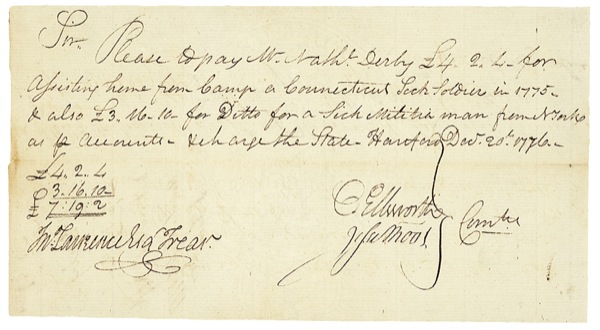 Sir
Please to pay Mr. Natht. Derby £4. 2. 4- for
Assisting home from Camp a Connecticut Sick Soldier in 1775-
& also £3. 16. 10- for Ditto for a Sick Militia man from N York
as p accounts- & charge the State- Hartford Decr. 20t. 1776-
£4. 2. 4
3. 16. 10-
£7: 19: 2
OEllsworth
Comtee
Jno. Lawrence Esq Trear.